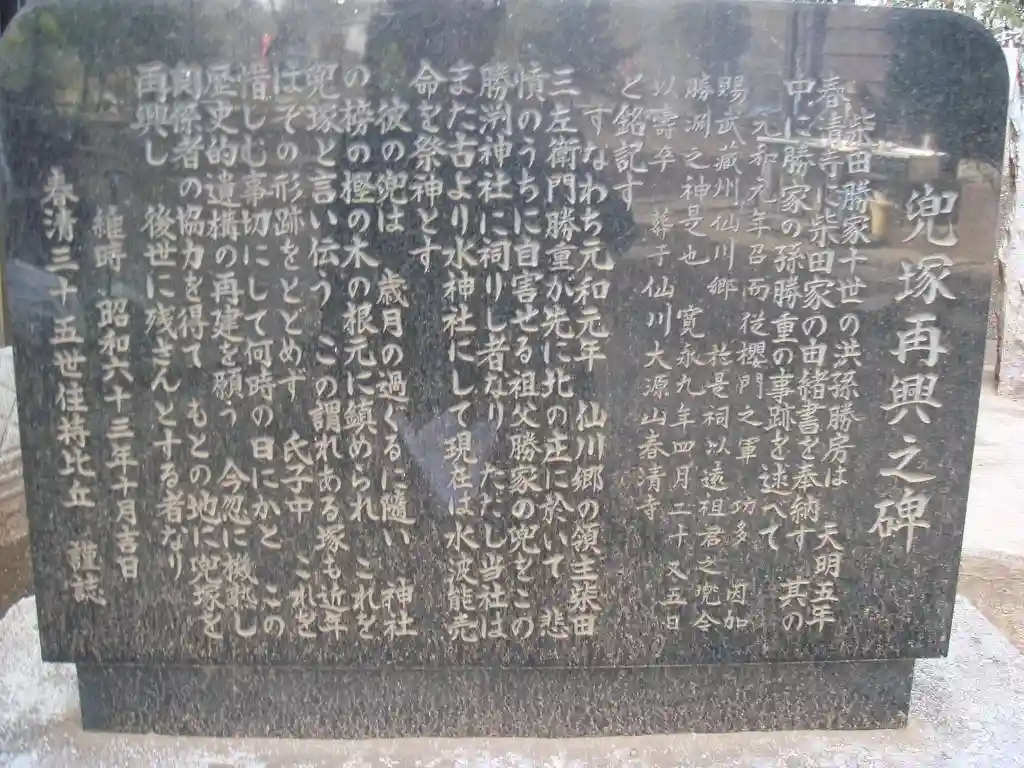 兜塚再興之碑
柴田勝家十世の洪孫勝房は　天明五年
春清寺に柴田家の由緒書を奉納す　其の
中に勝家の孫勝重の事跡を逑べて
元和元年召而従櫻門之軍　功多　因加
賜武蔵州仙川郷　於是祠以遠祖君之兜今
勝渕之神是也　寛永九年四月二十又五日
以壽卒　葬于仙川大源山春清寺
と銘記す
すなわち元和元年　仙川郷の領主柴田
三左衛門勝重が先に北の庄に於いて　悲
憤のうちに自害せる祖父勝家の兜をこの
勝渕神社に祠りし者なり　ただし当社は
また古より水神社にして現在は水波能売
命を祭神とす
彼の兜は　歳月の過ぐるに随い　神社
の榜の樫の木の根元に鎮められ　これを
兜塚と言い伝う　この謂れある塚も近年
はその形跡をとどめず　氏子中　これを
惜しむ事切にして何時の日にかと　この
歴史的遺構の再建を願う　今忽に機熟し
関係者の協力を得て　もとの地に兜塚を
再興し　後世に残さんとする者なり
維時　昭和六十三年十月吉日
春清三十五世住持比丘　謹誌